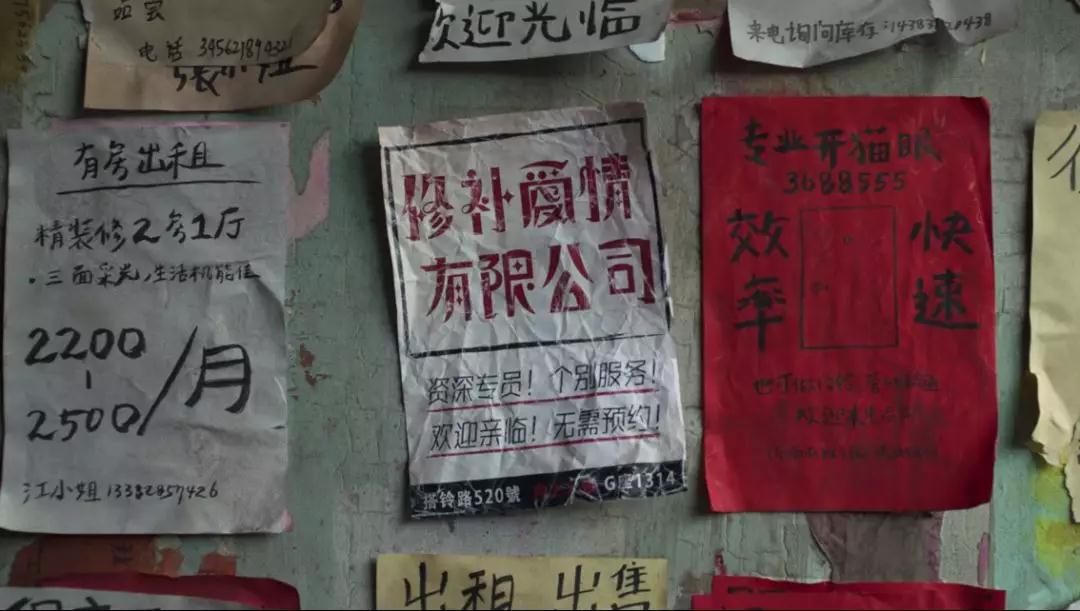 电话 39562189432
欢迎光临
来电询问库存:
有房出租
精装修2房1厅
·三面采光,生活机能佳
2200
-
2500/月
江小姐 13382857426
修补爱情
有限公司
资深专员!个别服务!
欢迎亲临!无需预约!
搭铃路520號
G座1314
专业开猫眼
3688555
效率
快速
出租 出售